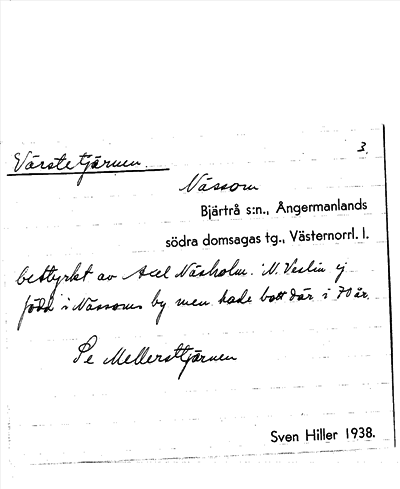 3.
Värstetjärnen.
Nässom
Bjärtrå s:n., Ångermanlands
södra domsagas tg., Västernorrl. l.
bettyrkt av Axel Näsholm. N. Veslin ej
född i Nässoms by men hade bott där i 70 år.
Se Mellersttjärnen
Sven Hiller 1938.